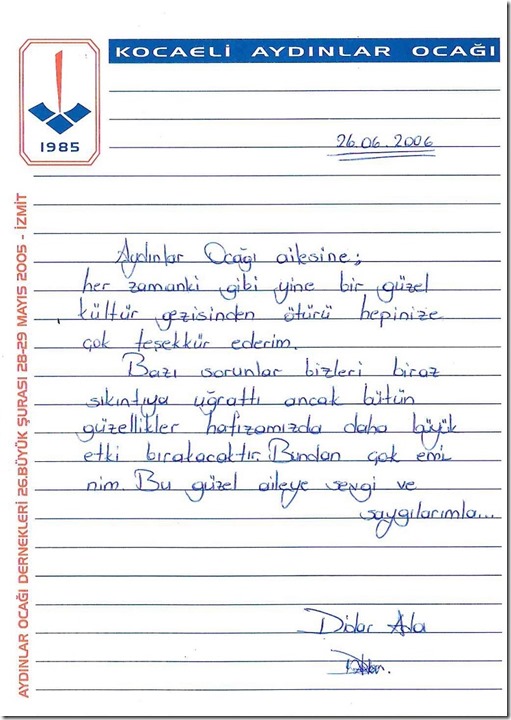 KOCAELİ AYDINLAR OCAĞI
1985
26.06.2006
Aydınlar Ocağı ailesine;
her zamanki gibi yine bir güzel
kültür gezisinden ötürü hepinize
çok teşekkür ederim.
Bazı sorunlar bizleri biraz
sıkıntıya uğrattı ancak bütün
güzellikler hafızamızda daha büyük
etki bırakacaktır. Bundan çok emi
nim. Bu güzel aileye sevgi ve
saygılarımla...
AYDINLAR OCAĞI DERNEKLERİ 26.BÜYÜK ŞURASI 28-29 MAYIS 2005 - İZMİT